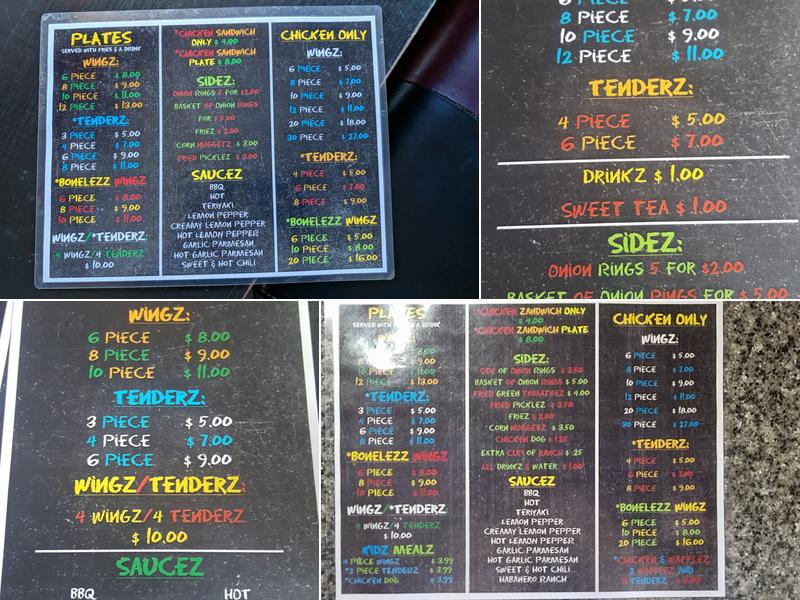 PLATES
SERVED WITH FRIES & A DRINK
WINGZ:
6 PIECE $ 8.00
8 PIECE $ 9.00
10 PIECE $ 11.00
12 PIECE $ 13.00
*TENDERZ:
3 PIECE $ 5.00
4 PIECE $ 7.00
6 PIECE $ 9.00
8 PIECE $ 11.00
*BONELEZZ WINGZ
6 PIECE $ 8.00
8 PIECE $ 9.00
10 PIECE $ 11.00
WINGZ/*TENDERZ:
4 WINGZ/4 TENDERZ
$ 10.00
*CHICKEN SANDWICH
ONLY $ 4.00
*CHICKEN SANDWICH
PLATE $ 8.00
SIDEZ:
ONION RINGS 5 FOR $2.00
BASKET OF ONION RINGS
FOR $ 5.00
FRIEZ $ 2.00
CORN NUGGETZ $ 3.00
FRIED PICKLEZ $ 3.00
SAUCEZ
BBQ
HOT
TERIYAKI
LEMON PEPPER
CREAMY LEMON PEPPER
HOT LEMON PEPPER
GARLIC PARMESAN
HOT GARLIC PARMESAN
SWEET & HOT CHILI
CHICKEN ONLY
WINGZ:
6 PIECE $ 5.00
8 PIECE $ 7.00
10 PIECE $ 9.00
12 PIECE $ 11.00
20 PIECE $ 18.00
30 PIECE $ 27.00
*TENDERZ:
4 PIECE $ 5.00
6 PIECE $ 7.00
8 PIECE $ 9.00
*BONELEZZ WINGZ
6 PIECE $ 5.00
10 PIECE $ 8.00
20 PIECE $ 16.00
6 PIECE
8 PIECE $ 7.00
10 PIECE $ 9.00
12 PIECE $ 11.00
TENDERZ:
4 PIECE $ 5.00
6 PIECE $ 7.00
DRINKZ $ 1.00
SWEET TEA $ 1.00
SIDEZ:
ONION RINGS 5 FOR $2.00
BASKET OF ONION RINGS FOR $ 5.00
WINGZ:
6 PIECE $ 8.00
8 PIECE $ 9.00
10 PIECE $ 11.00
TENDERZ:
3 PIECE $ 5.00
4 PIECE $ 7.00
6 PIECE $ 9.00
WINGZ/TENDERZ:
4 WINGZ/4 TENDERZ
$ 10.00
SAUCEZ
BBQ HOT
PLATES
SERVED WITH & A DRINK
8.00
9.00
10 $ 11.00
12 PIECE $ 13.00
*TENDERZ:
3 PIECE $ 5.00
4 PIECE $ 7.00
6 PIECE $ 9.00
8 PIECE $ 11.00
*BONELEZZ WINGZ
6 PIECE $ 8.00
8 PIECE $ 9.00
10 PIECE $ 11.00
WINGZ/*TENDERZ
4 WINGZ/4 TENDERZ
$ 10.00
KIDZ MEALZ
4 PIECE WINGZ $ 3.99
*2 PIECE TENDERZ $ 3.99
*CHICKEN DOG $ 3.99
*CHICKEN ZANDWICH ONLY
$ 4.00
*CHICKEN ZANDWICH PLATE
$ 8.00
SIDEZ:
SIDE OF ONION RINGS $ 3.50
BASKET OF ONION RINGS $ 5.00
FRIED GREEN TOMATOEZ $ 4.00
FRIED PICKLEZ $ 3.50
FRIEZ $ 2.00
CORN NUGGETZ $ 3.50
CHICKEN DOG $ 1.25
EXTRA CUP OF RANCH $ .25
ALL DRINKZ & WATER $ 1.00
SAUCEZ
BBQ
HOT
TERIYAKI
LEMON PEPPER
CREAMY LEMON PEPPER
HOT LEMON PEPPER
GARLIC PARMESAN
HOT GARLIC PARMESAN
SWEET & HOT CHILI
HABANERO RANCH
CHICKEN ONLY
WINGZ:
6 PIECE $ 5.00
8 PIECE $ 7.00
10 PIECE $ 9.00
12 PIECE $ 11.00
20 PIECE $ 18.00
30 PIECE $ 27.00
*TENDERZ:
4 PIECE $ 5.00
6 PIECE $ 7.00
8 PIECE $ 9.00
*BONELEZZ WINGZ
6 PIECE $ 5.00
10 PIECE $ 8.00
20 PIECE $ 16.00
*CHICKEN & WAFFLEZ
2 WAFFLEZ AND
TENDERZ